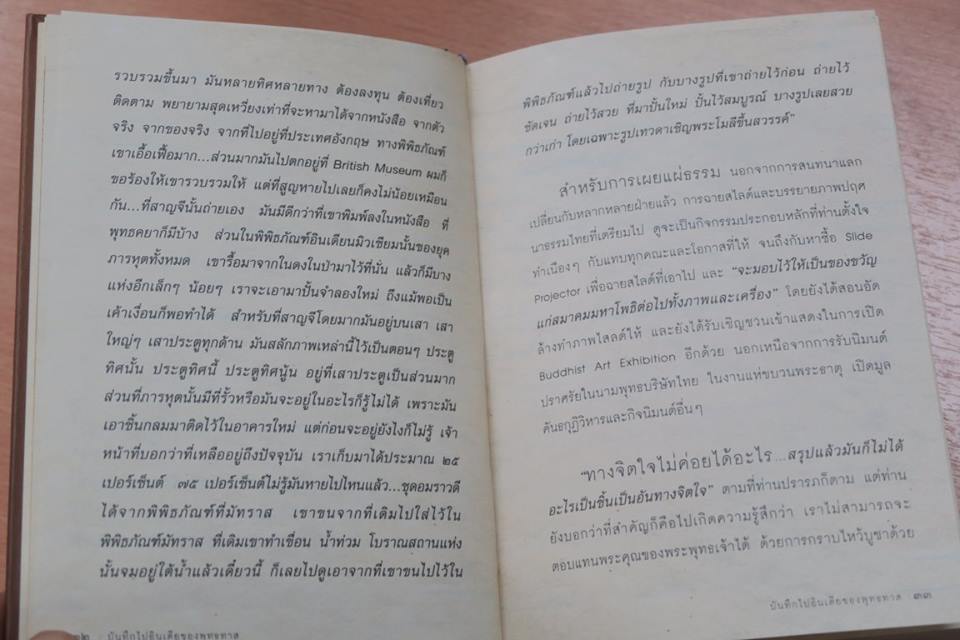 รวบรวมขึ้นมา มันหลายทิศหลายทาง ต้องลงทุน ต้องเที่ยว
ติดตาม พยายามสุดเหวี่ยงเท่าที่จะหามาได้จากหนังสือ จากตัว
จริง จากของจริง จากที่ไปอยู่ที่ประเทศอังกฤษ ทางพิพิธภัณฑ์
เขาเอื้อเฟื้อมาก...ส่วนมากมันไปตกอยู่ที่ British Museum ผมก็
ขอร้องให้เขารวบรวมให้ แต่ที่สูญหายไปเลยก็คงไม่น้อยเหมือน
กัน...ที่สาญจีนั้นถ่ายเอง มันมีดีกว่าที่เขาพิมพ์ลงในหนังสือ ที่
พุทธคยาก็มีบ้าง ส่วนในพิพิธภัณฑ์อินเดียนมิวเซียมนั้นของยุค
ภารหุตทั้งหมด เขารื้อมาจากในดงในป่ามาไว้ที่นั่น แล้วก็มีบาง
แห่งอีกเล็กๆ น้อยๆ เราจะเอามาปั้นจำลองใหม่ ถึงแม้พอเป็น
เค้าเงื่อนก็พอทำได้ สำหรับที่สาญจีโดยมากมันอยู่บนเสา เสา
ใหญ่ๆ เสาประตูทุกด้าน มันสลักภาพเหล่านี้ไว้เป็นตอนๆ ประตู
ทิศนั้น ประตูทิศนี้ ประตูทิศนู้น อยู่ที่เสาประตูเป็นส่วนมาก
ส่วนที่ภารหุตนั้นมีที่รั้วหรือมันจะอยู่ในอะไรก็รู้ไม่ได้ เพราะมัน
เอาชิ้นกลมมาติดไว้ในอาคารใหม่ แต่ก่อนจะอยู่ยังไงก็ไม่รู้ เจ้า
หน้าที่บอกว่าที่เหลืออยู่ถึงปัจจุบัน เราเก็บมาได้ประมาณ ๒๕
เปอร์เซ็นต์ ๗๕ เปอร์เซ็นต์ไม่รู้มันหายไปไหนแล้ว...ชุดอมราวดี
ได้จากพิพิธภัณฑ์ที่มัทราส เขาขนจากที่เดิมไปใส่ไว้ใน
พิพิธภัณฑ์มัทราส ที่เดิมเขาทำเขื่อน น้ำท่วม โบราณสถานแห่ง
นั้นจมอยู่ใต้น้ำแล้วเดี๋ยวนี้ ก็เลยไปดูเอาจากที่เขาขนไปไว้ใน
๓๒ : บันทึกไปอินเดียของพุทธทาส
พิพิธภัณฑ์แล้วไปถ่ายรูป กับบางรูปที่เขาถ่ายไว้ก่อน ถ่ายไว้
ชัดเจน ถ่ายไว้สวย ที่มาปั้นใหม่ ปั้นไว้สมบูรณ์ บางรูปเลยสวย
กว่าเก่า โดยเฉพาะรูปเทวดาเชิญพระโมลีขึ้นสวรรค์”
สำหรับการเผยแผ่ธรรม นอกจากการสนทนาแลก
เปลี่ยนกับหลากหลายฝ่ายแล้ว การฉายสไลด์และบรรยายภาพปฤศ
นาธรรมไทยที่เตรียมไป ดูจะเป็นกิจกรรมประกอบหลักที่ท่านตั้งใจ
ทำเนืองๆ กับแทบทุกคณะและโอกาสที่ให้ จนถึงกับหาซื้อ Slide
Projector เพื่อฉายสไลด์ที่เอาไป และ “จะมอบไว้ให้เป็นของขวัญ
แก่สมาคมมหาโพธิต่อไปทั้งภาพและเครื่อง” โดยยังได้สอนอัด
ล้างทำภาพไสลด์ให้ และยังได้รับเชิญชวนเข้าแสดงในการเปิด
Buddhist Art Exhibition อีกด้วย นอกเหนือจากการรับนิมนต์
ปราศรัยในนามพุทธบริษัทไทย ในงานแห่ขบวนพระธาตุ เปิดมูล
คันธกุฎีวิหารและกิจนิมนต์อื่นๆ
“ทางจิตใจไม่ค่อยได้อะไร...สรุปแล้วมันก็ไม่ได้
อะไรเป็นชิ้นเป็นอันทางจิตใจ” ตามที่ท่านปรารภก็ตาม แต่ท่าน
ยังบอกว่าที่สำคัญก็คือไปเกิดความรู้สึกว่า เราไม่สามารถจะ
ตอบแทนพระคุณของพระพุทธเจ้าได้ ด้วยการกราบไหว้บูชาด้วย
บันทึกไปอินเดียของพุทธทาส : ๓๓